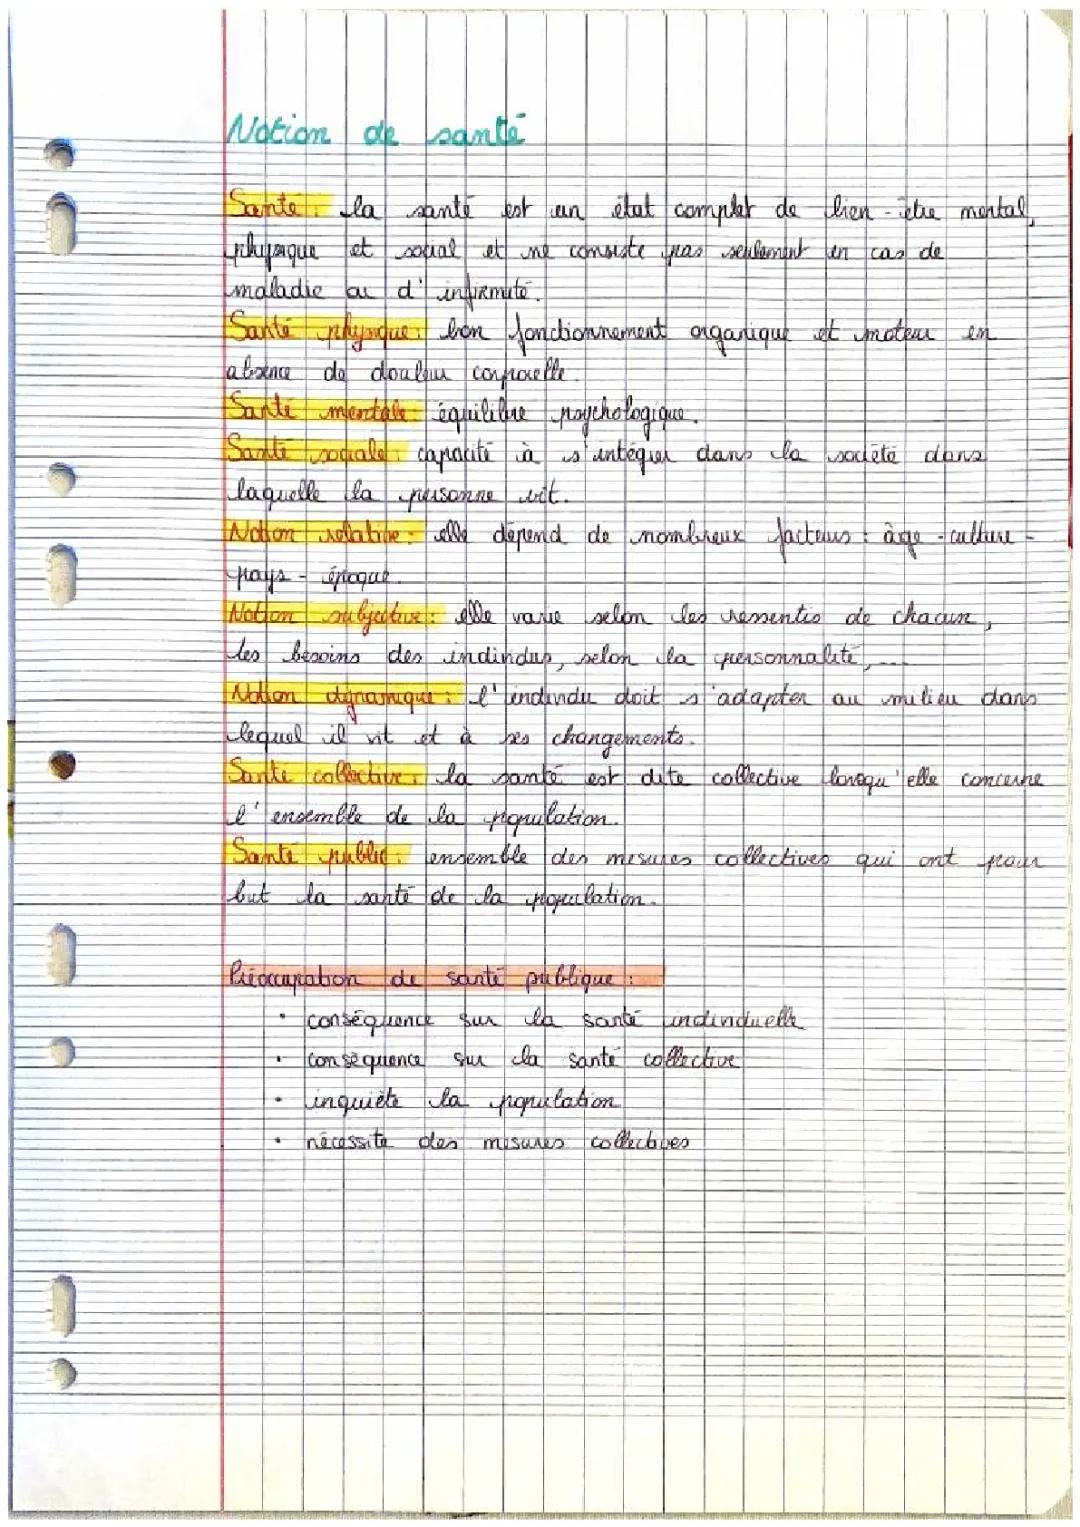 Notion de santé
Santé : la santé est un état complet de bien-être mental,
physique et social et ne consiste pas seulement en cas de
maladie ou d'infirmité.
Santé physique : bon fonctionnement organique et moteur en
absence de douleur corporelle.
Santé mentale : équilibre psychologique.
Santé sociale : capacité à s'intégrer dans la société dans
laquelle la personne vit.
Notion relative : elle dépend de nombreux facteurs : âge - culture -
pays - époque.
Notion subjective : elle varie selon les ressentis de chacun,
les besoins des individus, selon la personnalité, ...
Notion dynamique : l'individu doit s'adapter au milieu dans
lequel il vit et à ses changements.
Santé collective : la santé est dite collective lorsqu'elle concerne
l'ensemble de la population.
Santé public : ensemble des mesures collectives qui ont pour
but la santé de la population.
Préoccupation de santé publique :
• conséquence sur la santé individuelle
• conséquence sur la santé collective
• inquiète la population
• nécessite des mesures collectives